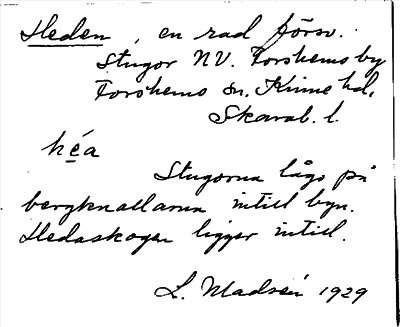 Heden, en rad försv.
Stugor NV. Forshems by
Forshems sn. Kinne hd.
Skarab. l.
héa
Stugorna lågo på
bergknallarna intill byn.
Hedaskogen ligger intill.
L. Madsén 1929